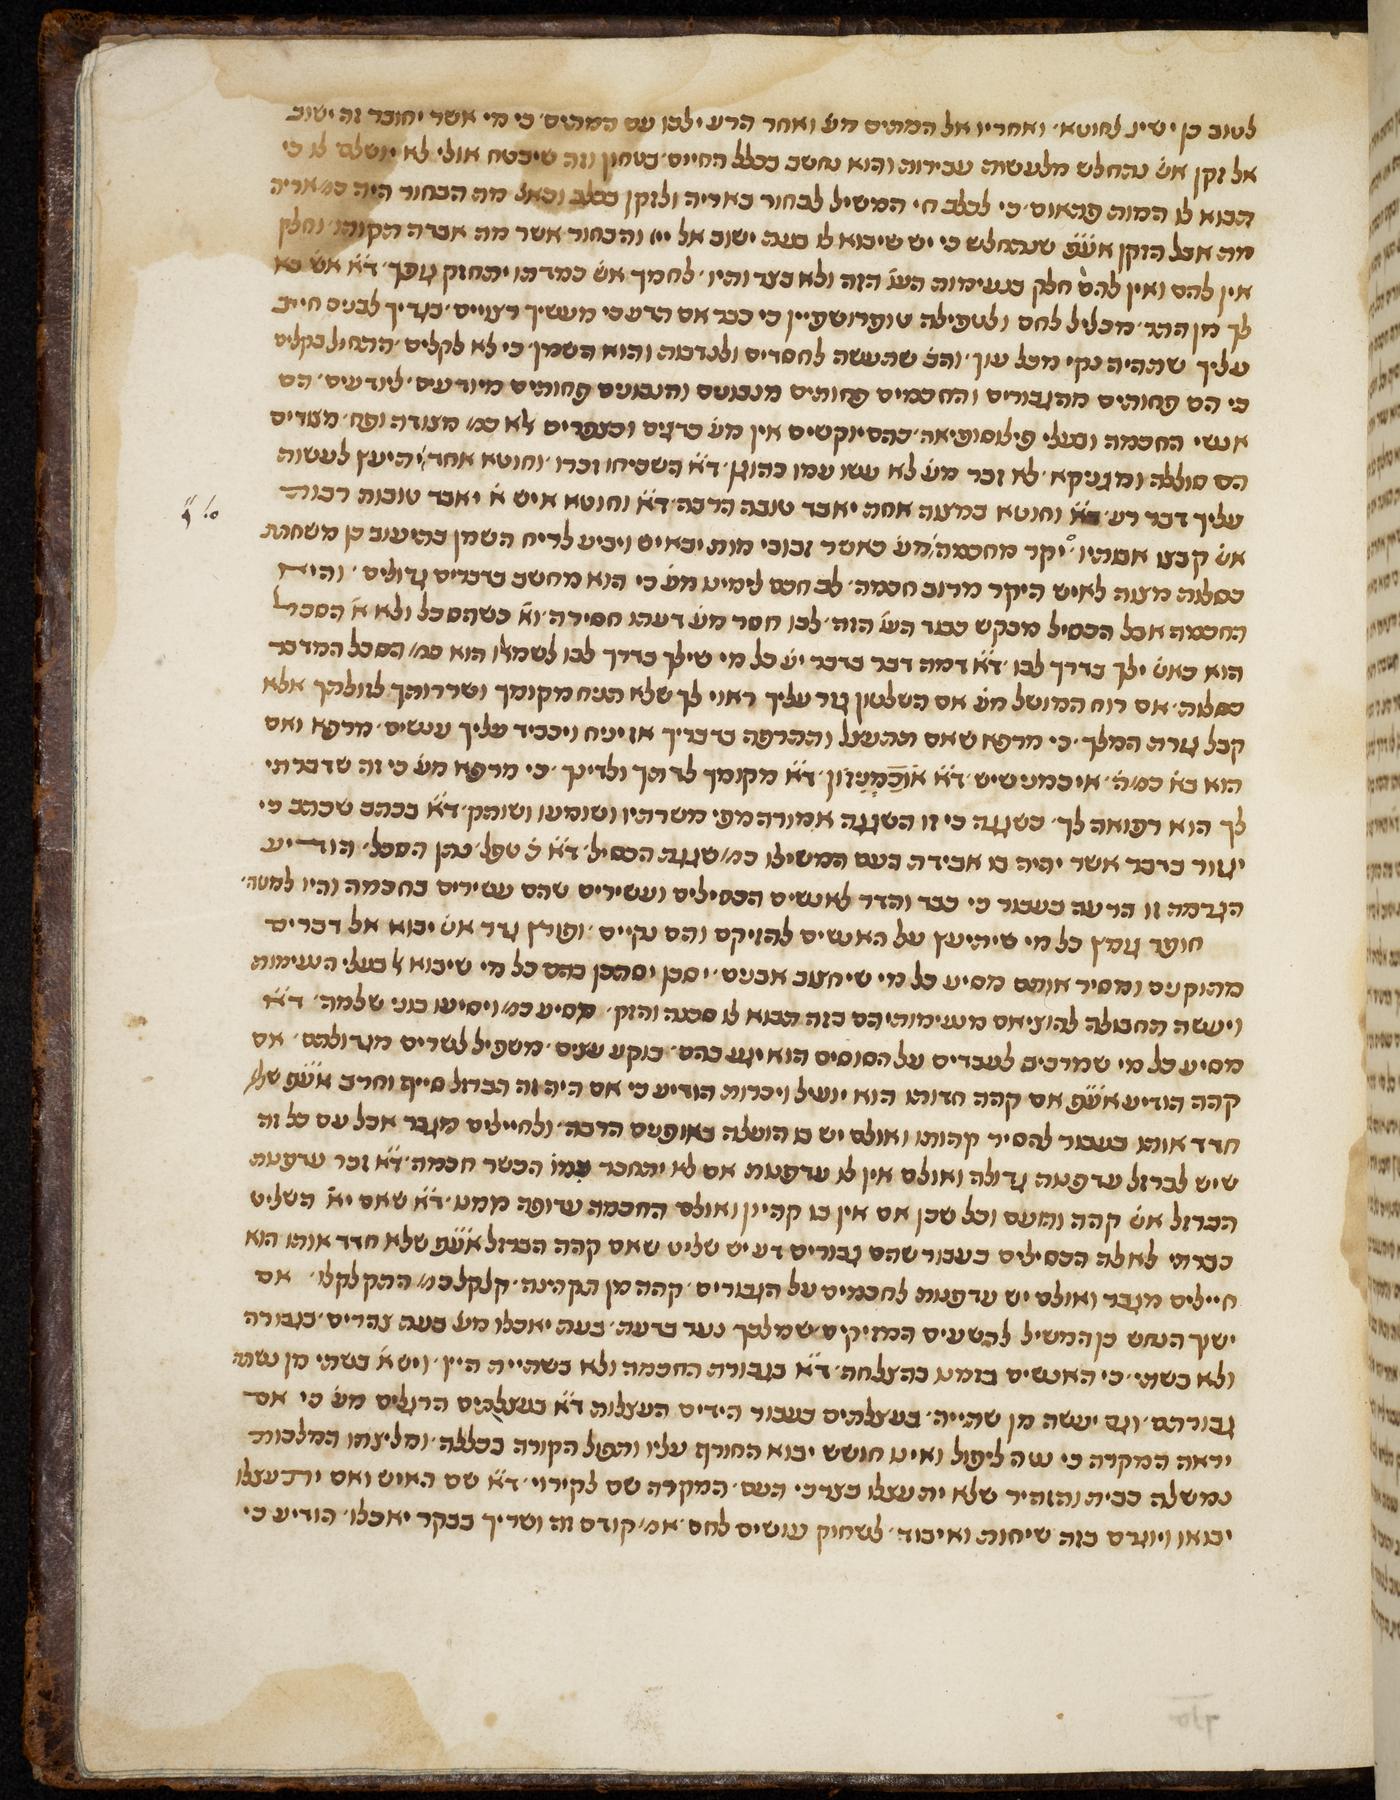 לטוב כן ישיג לחוטא׳ ואחריו אל המתים מע׳ ואחר הרע ילכו עם המתים׳ כי מי אשר יחובר זה ישוב
אל זקן אש׳ נהחלש מלעשות עבירות והוא נחשב בכלל החיים׳ בטחון וזה שיבטח אולי לא יושלם לו כי
תבוא לו המות פתאום׳ כי לכלב חי המשיל לבחור באריה ולזקן בכלב וכאל מה הבחור היה כמ׳ אריה
מה אבל הזקן אע״פ שנחלש כי יש שיבוא לו בעת ישוב אל ייי והבחור אשר מת אבדה תקותו׳ וחלק
אין להם ואין להם חלק בנעימות הע׳ הזה ולא בצר והיו׳ לחמך אש׳ כמדתו יתחזק גופך׳ ד״א אש׳ בא
לך מן התר׳ מכליל לחם ולטפילה שופרושפיין כי כבר אם תדע כי מעשיך רצויים׳ בגדיך לבנים חייב
עליך שתהיה נקי מכל עון׳ והכ׳ שתעשה לחסדים ולנדבות והוא השמן׳ כי לא לקלים׳ התחיל בקלים
כי הם פחותים מהגבורים והחכמים פחותים מנבונים והנבונים פחותים מיודעים׳ ליודעים׳ הם
אנשי החכמה ובעלי פילוסופיאה׳ כהם יוקשים אין מע׳ כדגים וכצפרים לא כמ׳ מצודה ופח׳ מצודים
הם סוללה ומגניקא׳ לא זכר מע׳ לא עשו עמו כהוגן׳ ד״א השכיחו זכרו׳ וחוטא אחד׳ היעץ לעשות
עליך דבר רע׳ ד״א וחוטא בטעות אחת יאבד טובה הרבה׳ ד״א וחוטא איש א׳ יאבד טובות רבות
אש׳ קבצו אבותיו׳ יקר מחכמה׳ מע׳ כאשר זבובי מות יבאיש ויביע לריח השמן בהיעוב כן משחתת
כסלות מעט לאיש היקר מרוב חכמה׳ לב חכם לימינו מע׳ כי הוא מחשב בדברים גדולים׳ והיא
החכמה אבל הכסיל מבקש כבוד הע׳ הזה׳ לבו חסר מע׳ דעתו חסירה׳ וא״ כשהסכל ולא א׳ הסכל
הוא כאש׳ ילך בדרך לבו׳ ד״א דמה דבר בדבר יע׳ כל מי שילך בדרך לבו לשמאלו הוא כמ׳ הסכל המדבר
כסלות׳ אם רוח המושל מע׳ אם השלטון גזר עליך ראוי לך שלא תניח מקומך ושררותך לזולתך אלא
קבל גזרת המלך׳ כי מרפא שאם תתעצל ותתרפה בדבריך אז יניח ויכביד עליך עונשים׳ מרפא ואם
הוא בא׳ כמ׳ ה׳ אי כמנו שיש׳ ד״א אוכמניזון׳ ד״א מקומך לדתך ולדינך׳ כי מרפא מע׳ כי זה שדברתי
לך הוא רפואה לך׳ כשגגה כי זו השגגה אמורה מפי משרתיו ושומעו ושותק׳ ד״א בכתב שכתב כי
יגזור בדבר אשר יהיה בו אבידת בעם המשילו כמ׳ שגגת הכסיל׳ ד״א כ׳ טפל׳ נתן הסכל׳ הודיע
הגרמה זו הרעה בעבור כי כבד והדר לאנשים הכסילים ועשירים שהם עשירים בחכמה והיו למטה׳
חופר גומץ כל מי שיתיעץ על האנשים להזיקם והם נקיים׳ ופורץ גדר אש׳ יבוא אל דברים
מתוקנים ומסיר אותם מסיע כל מי שיחצוב אבנים׳ יסכן יסתכן בהם כל מי שיבוא לבעלי הנעימות
ויעשה תחבולה להוציאם מנעימותיהם בזה תבוא לו סכנה והזק׳ מסיע כמ׳ ויסיעו בוני שלמה׳ ד״א
מסיע כל מי שמרכיב לעבדים על הסוסים הוא יגע בהם׳ בוקע עצים׳ משפיל לשרים מגדולתם׳ אם
קהה הודיע אע״פ אם קהה חדותו הוא ינשיל ויכרות הודיע כי אם היה זה הברזל סייף וחרב אע״פ שלא
חדד אותו בעבור להסיר קהותו ואולם יש בו תועלת באופנים הרבה׳ ולחיילים מגבר אבל עם כל זה
שיש לברזל עדפות גדולה ואולם אין לו עדפות אם לא יתחבר עמו הכשר חכמה׳ ד״א זכר עדפות
הברזל אש׳ קהה ונועם וכל שכן אם אין בו קהיון ואולם החכמה עדופה ממנו׳ ד״א שאם יא׳ השליט
כברתי לאלה הכסילים בעבור שהם גבורים דע יש שליט שאם קהה הברזל אע״פ שלא חדד אותו הוא
חיילים מגבר ואולם יש עדפות לחכמים על הגבורים׳ קהה מן הקהיגה׳ קלקל כמ׳ התקלקלו׳ אם
ישוך הנחש כן המשיל להרשעים המזיקים שמלכך נער ברעה׳ בעת יאכלו מע׳ בעת צהרים׳ בגבורה
ולא בשתי׳ כי האנשים בזמנו בהצלחה׳ ד״א בגבורת החכמה ולא בשתיית היין׳ ויש א׳ בשתי מן נשתה
גבורתם׳ וגם יעשה מן שתייה׳ בעצלתים בעבור הידים העצלות ד״א בעצלתים הרגלים מע׳ כי אם
יראה המקרה כי נטה ליפול ואינו חושש יבוא החורף עליו ותפול הקורה בכללה׳ ומליצתו המלכות
נמשלה כבית והזהיר שלא יתעצלו בצרכי העם׳ המקרה שם לקירוי׳ ד״א שם האיש ואם יתעצלו
יבואו ויוגרם בזה שיחות ואיבוד׳ לשחוק עושים לחם׳ אמ׳ קודם זה ושריך בבקר יאכלו׳ הודיע כי